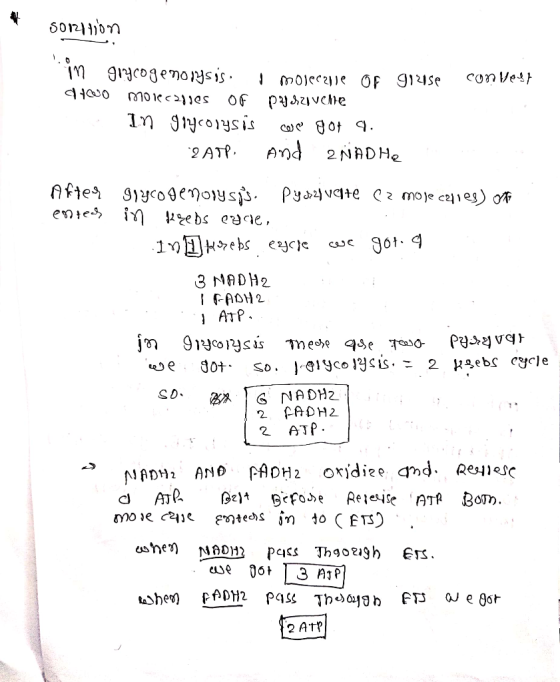 Solution
1. in glycogenolysis. 1 molecule of gluse convert
a two molecules of pyruvete
In glycolysis we got a.
2 ATP. And 2 NADH2
After glycogenolysis. Pyruvate (2 molecules) of
enter in krebs cycle,
In 1 krebs cycle we got. a
3 NADH2
1 FADH2
1 ATP.
in glycolysis there are two Pyruvat
we got. so. 1 glycolysis. = 2 krebs cycle
so. 6 NADH2
2 FADH2
2 ATP.
→ NADH2 AND FADH2 oxidize and. Realese
a ATP. But Before Release ATP Both.
molecule enters in to (ETS)
when NADH2 pass Through ETS.
we got 3 ATP
when FADH2 pass Through ETS we got
2 ATP